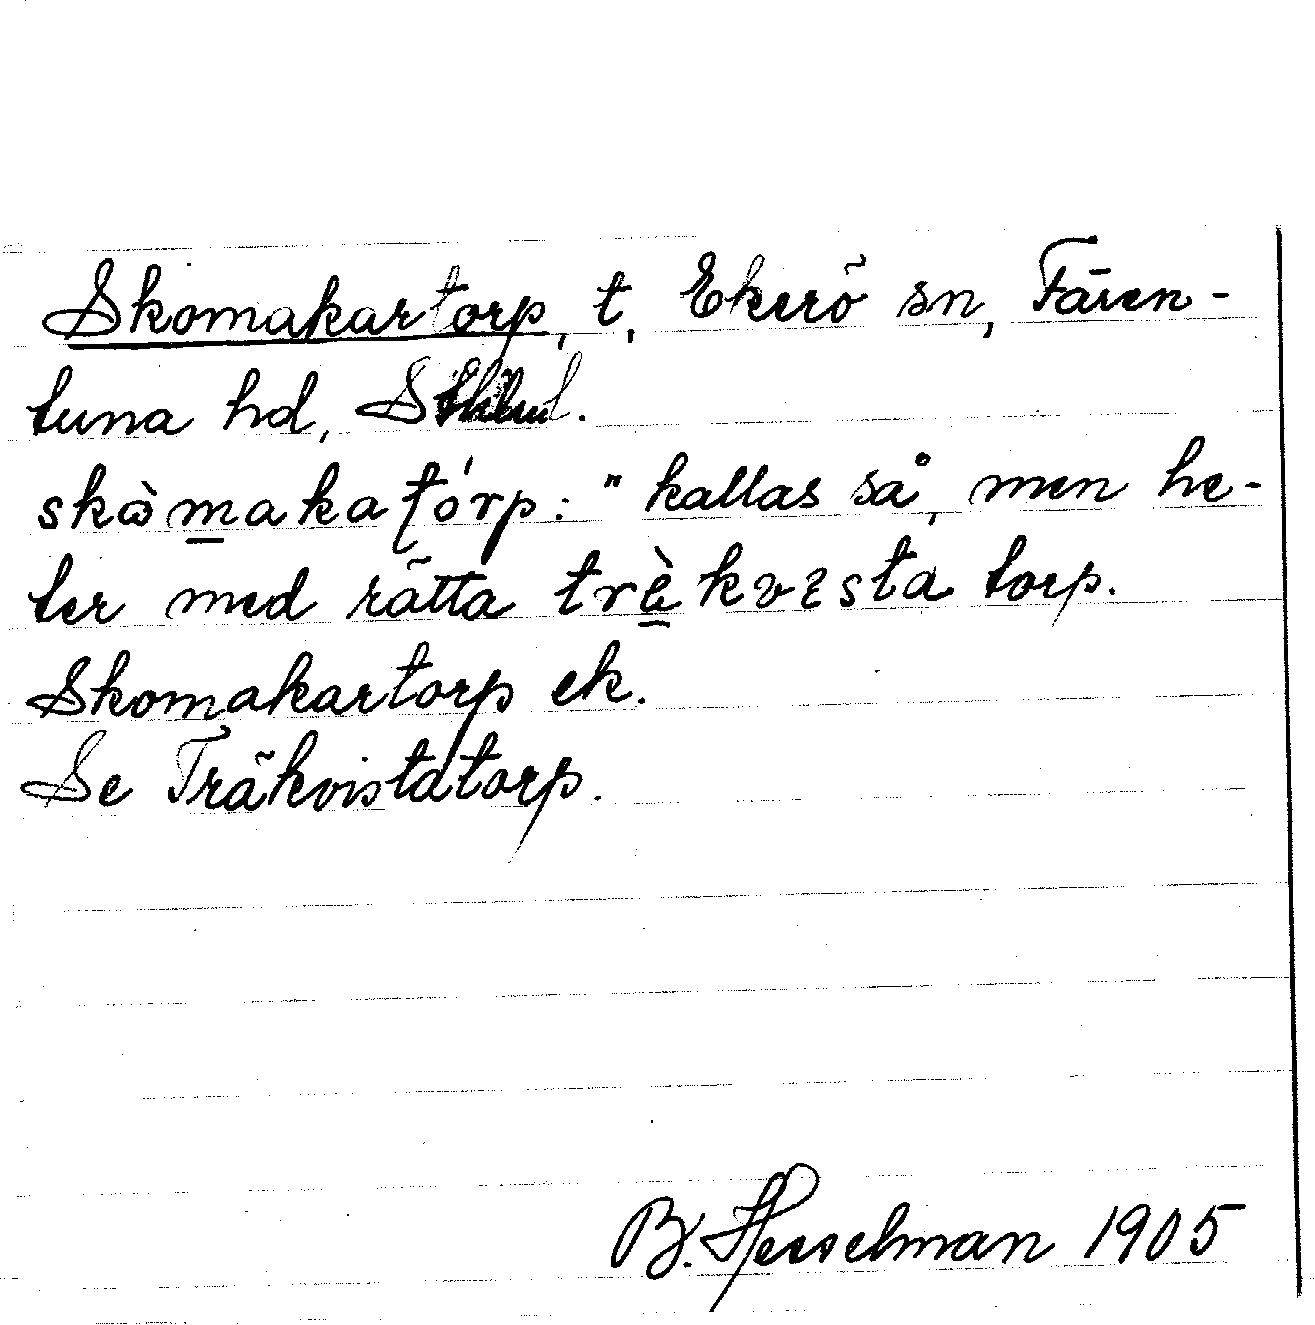 Skomakartorp, t, Ekerö sn, Fären-
tuna hd,
skòmakatórp: "kallas så, men he-
ter med rätta trèkvista torp.
Skomakartorp ek.
Se Träkvistatorp.
B. Hesselman 1905